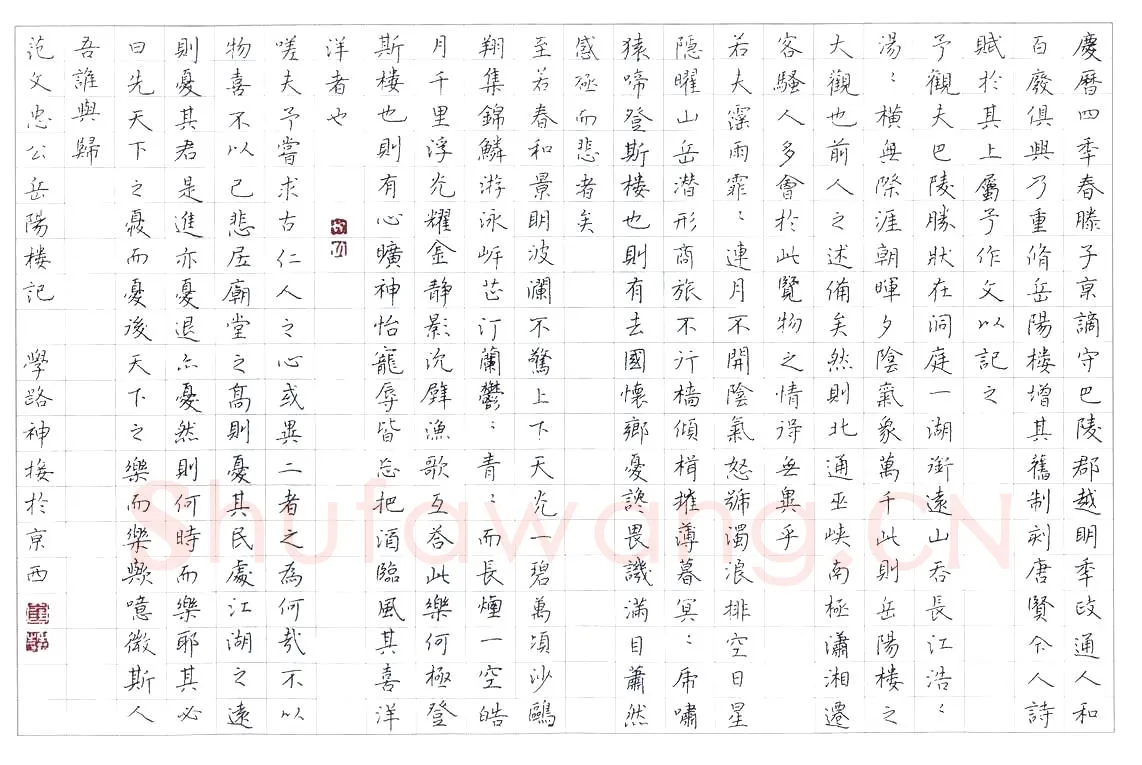 慶曆四秊春滕子京謫守巴陵郡越明秊政通人和
百廢俱興乃重脩岳陽樓增其舊制刻唐賢今人詩
賦於其上屬予作文以記之
予觀夫巴陵勝狀在洞庭一湖銜遠山吞長江浩〻
湯〻橫無際涯朝暉夕陰氣象萬千此則岳陽樓之
大觀也前人之述備矣然則北通巫峽南極瀟湘遷
客騷人多會於此覽物之情得無異乎
若夫霪雨霏〻連月不開陰氣怒號濁浪排空日星
隱曜山岳潛形商旅不行檣傾楫摧薄暮冥〻虎嘯
猿啼登斯樓也則有去國懷鄉憂讒畏譏滿目蕭然
感極而悲者矣
至若春和景明波瀾不驚上下天光一碧萬頃沙鷗
翔集錦鱗游泳岸芷汀蘭鬱〻青〻而長煙一空皓
月千里浮光耀金靜影沉璧漁歌互答此樂何極登
斯樓也則有心曠神怡寵辱皆忘把酒臨風其喜洋
洋者也
嗟夫予嘗求古仁人之心或異二者之為何哉不以
物喜不以己悲居廟堂之高則憂其民處江湖之遠
則憂其君是進亦憂退亦憂然則何時而樂耶其必
曰先天下之憂而憂後天下之樂而樂歟噫微斯人
吾誰與歸
范文忠公岳陽樓記 學路神接於京西
Shufawang.CN